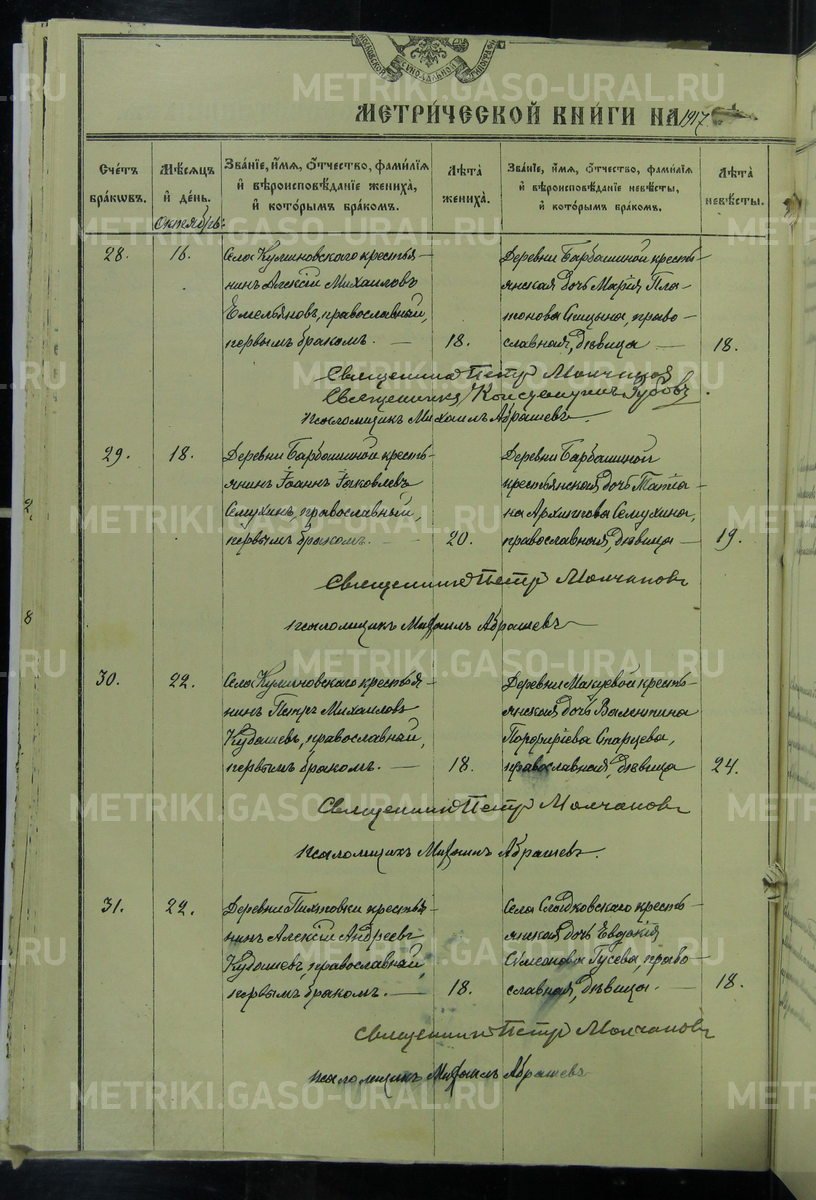 МЕТРИ́ЧЕСКОЙ КНИ́ГИ НА 1917
Счéтъ брáкѡвъ.
Мѣ́сяцъ и́ дéнь.
Звáнїе, и́мѧ, ѻ́тчество, фамѝлїѧ и́ вѣроисповѣ́данїе женихà, и́ котóрымъ брáкомъ.
Лѣ́та женихà.
Звáнїе, и́мѧ, ѻ́тчество, фамѝлїѧ и́ вѣроисповѣ́данїе невѣ́сты, и́ котóрымъ брáкомъ.
Лѣ́та невѣ́сты.
Октябрь:
28. 16.
Села Кулиновскаго крестья-
нинъ Алексій Михаиловъ
Емельяновъ, православный,
первымъ бракомъ. — 18.
Деревни Барбашиной кресть-
янская дочь Марія Пла-
тонова Спицына, право-
славная, дѣвица — 18.
Священникъ Петр Молчанов
Священникъ Константинъ Зубовъ.
Псаломщикъ Михаилъ Абрашевъ.
29. 18.
Деревни Барбашиной кресть-
янинъ Іоаннъ Іаковлевъ
Семухинъ, православный,
первымъ бракомъ. — 20.
Деревни Барбашиной
крестьянская дочь Татіа-
на Архиппова Семухина,
православная, дѣвица — 19.
Священник Петр Молчанов
Псаломщикъ Михаилъ Абрашевъ
30. 22.
Села Кулиновскаго крестья-
нинъ Петръ Михаиловъ
Кудашевъ, православный,
первымъ бракомъ. — 18.
Деревни Макуевой кресть-
янская дочь Валентина
Порфиріева Старцева,
православная, дѣвица 24.
Священник Петр Молчанов
Псаломщикъ Михаилъ Абрашевъ.
31. 22.
Деревни Пихтовки крестья-
нинъ Алексій Андреевъ
Кудашевъ, православный,
первымъ бракомъ. — 18.
Села Сладковскаго кресть-
янская дочь Евдокія
Симеонова Гусева, право-
славная, дѣвица. — 18.
Священник Петр Молчанов
Псаломщикъ Михаилъ Абрашевъ
METRIKI.GASO-URAL.RU